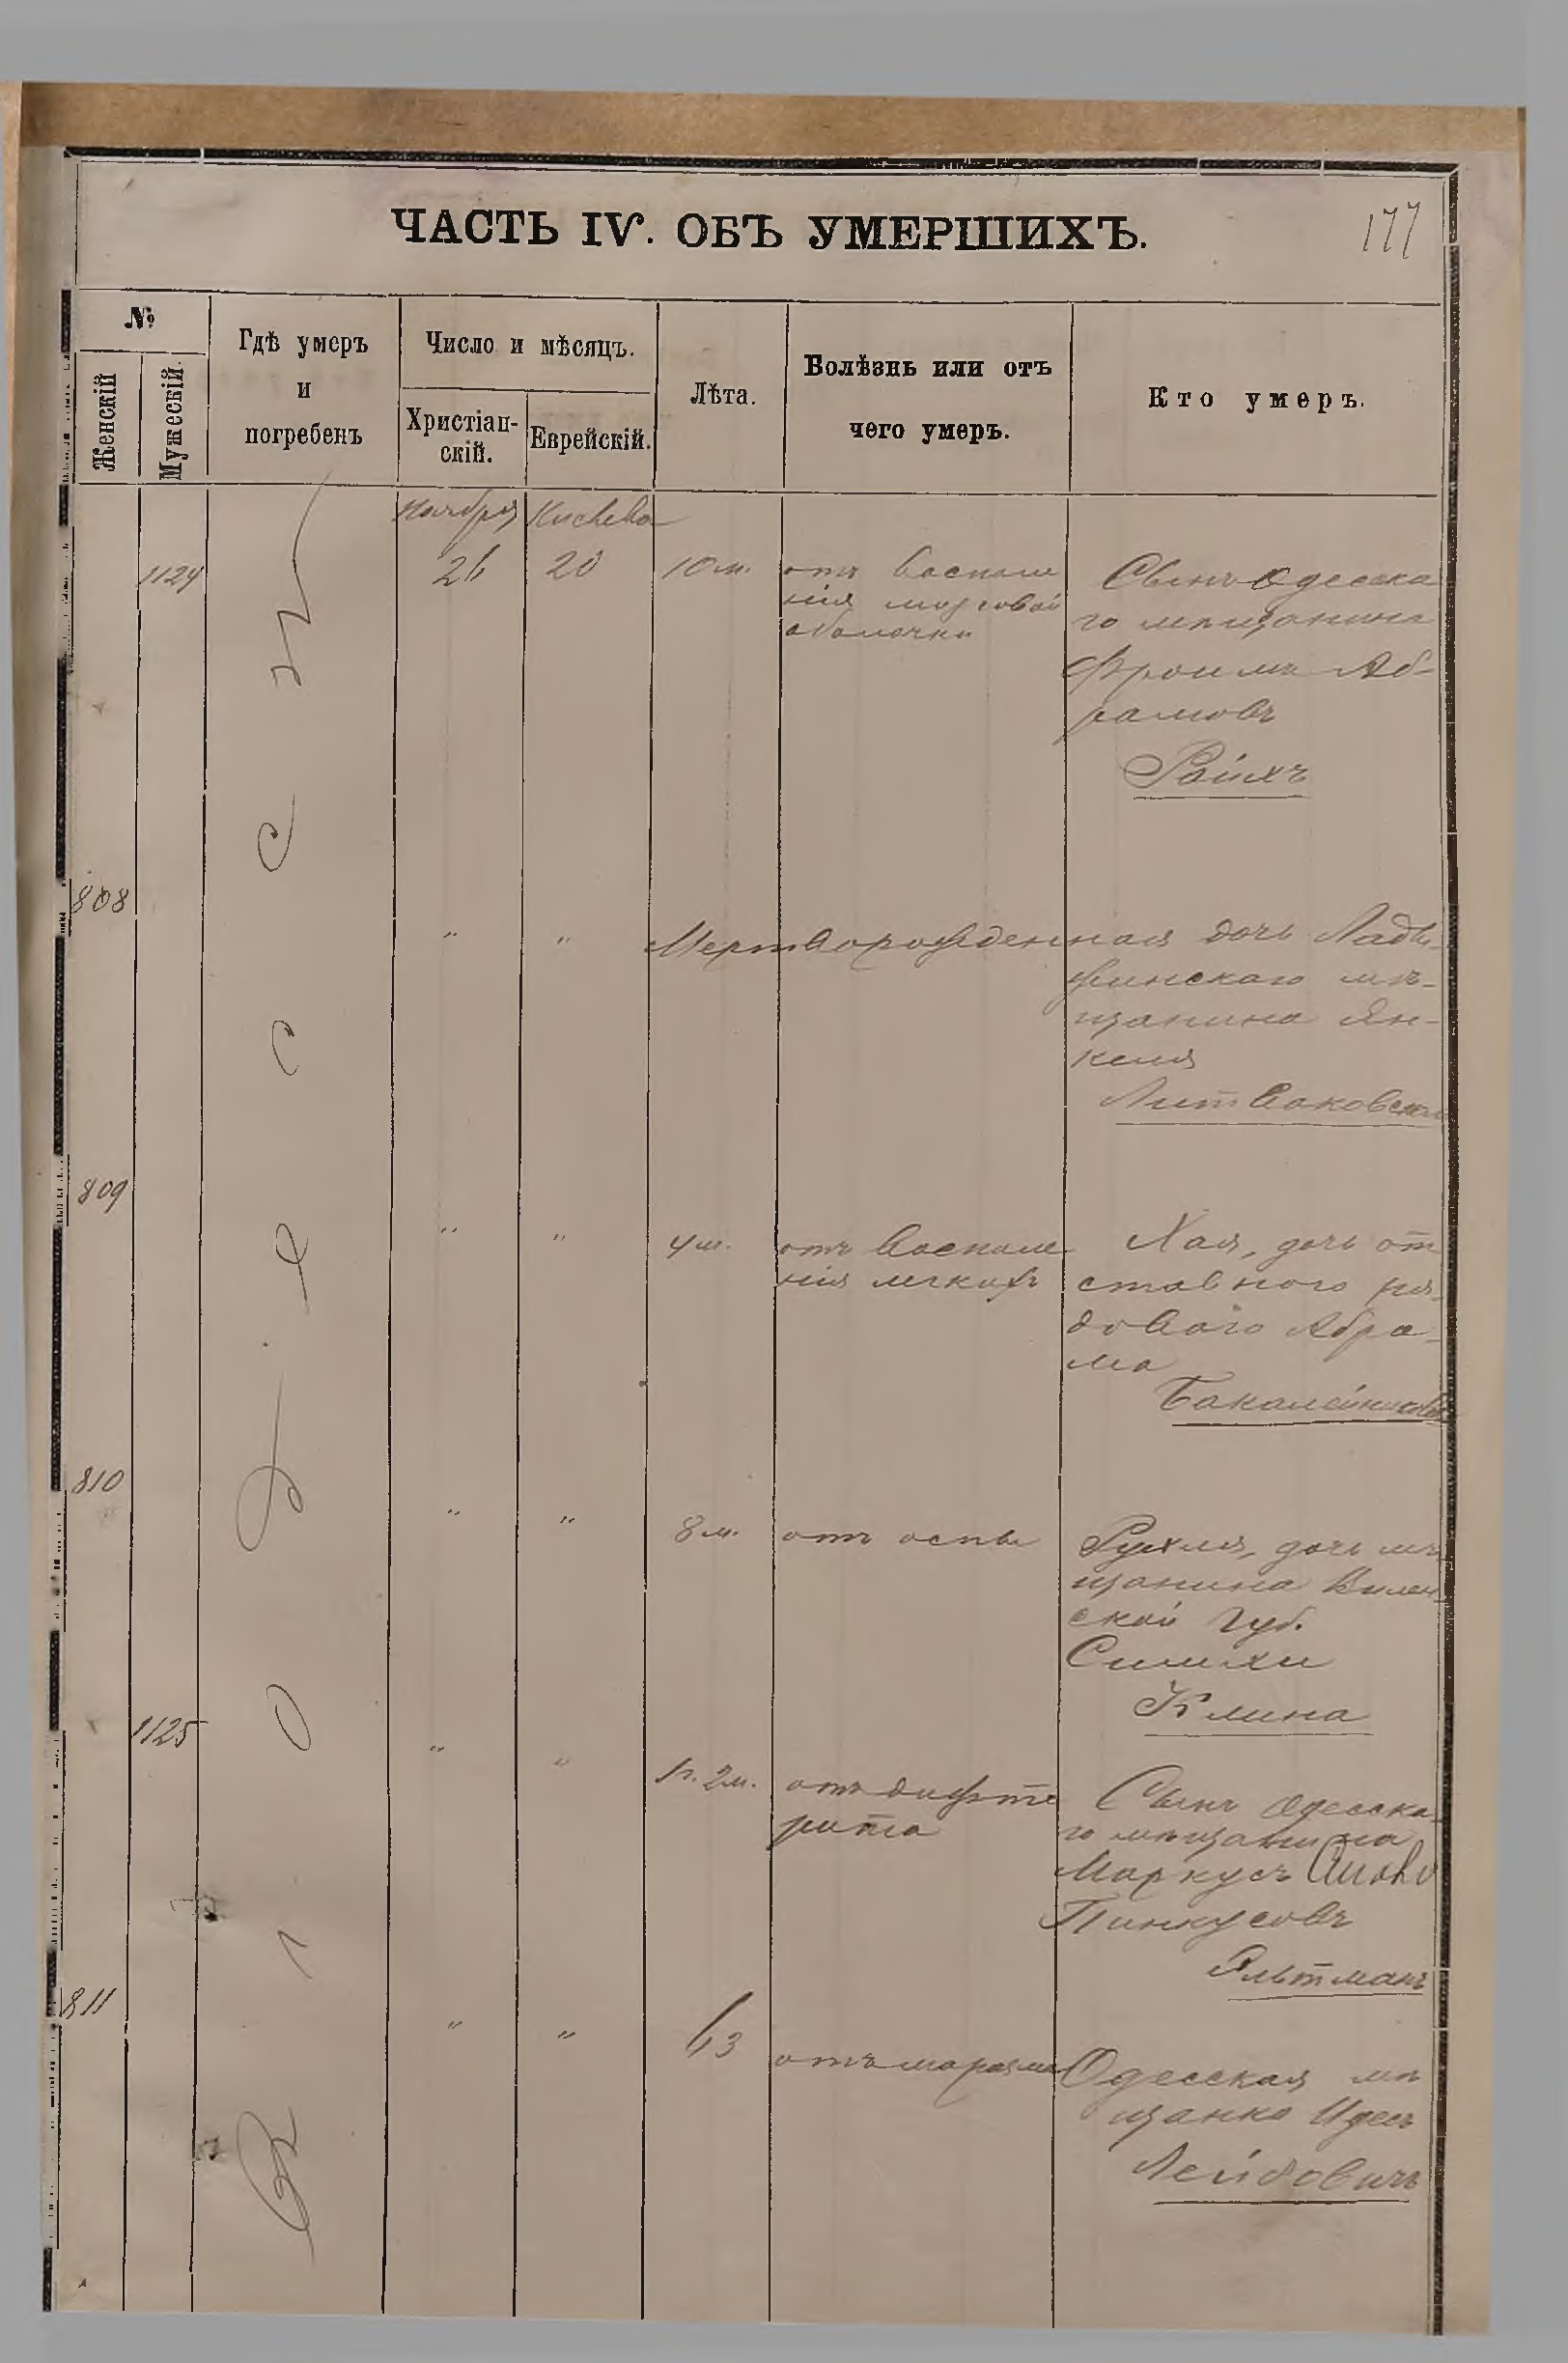 ЧАСТЬ IV. ОБЪ УМЕРШИХЪ.
177
№
Женскій
Мужескій.
Гдѣ умеръ
и
погребенъ
Число и мѣсяцъ.
Христіан-
скій.
Еврейскій.
Лѣта.
Болѣзнь или отъ
чего умеръ.
Кто умеръ.
Въ г. Одессѣ
Ноября
Кислева
1124
26
20
10 м.
отъ воспале
нія мозговой
оболочки
Сынъ Одесска
го мѣщанина
Фроимъ Аб-
рамовъ
Райхъ
808
"
"
Мертворожденная дочь Лады-
жинскаго мѣ-
щанина Ян-
келя
Литваковска
809
"
"
4 м.
отъ воспале
нія легкихъ
Хая, дочь от
ставного ря-
доваго Абра-
ма
Бакалейникова
810
"
"
8 м.
отъ оспы
Рухля, дочь мѣ
щанина Вилен-
ской губ.
Симхи
Клина
1125
"
"
1 г. 2 м.
отъ дифте
рита
Сынъ Одесска-
го мѣщанина
Маркусъ
Пинкусовъ
Альтманъ
811
"
"
63
отъ маразма
Одесская мѣ
щанка Идесъ
Лейбовичъ